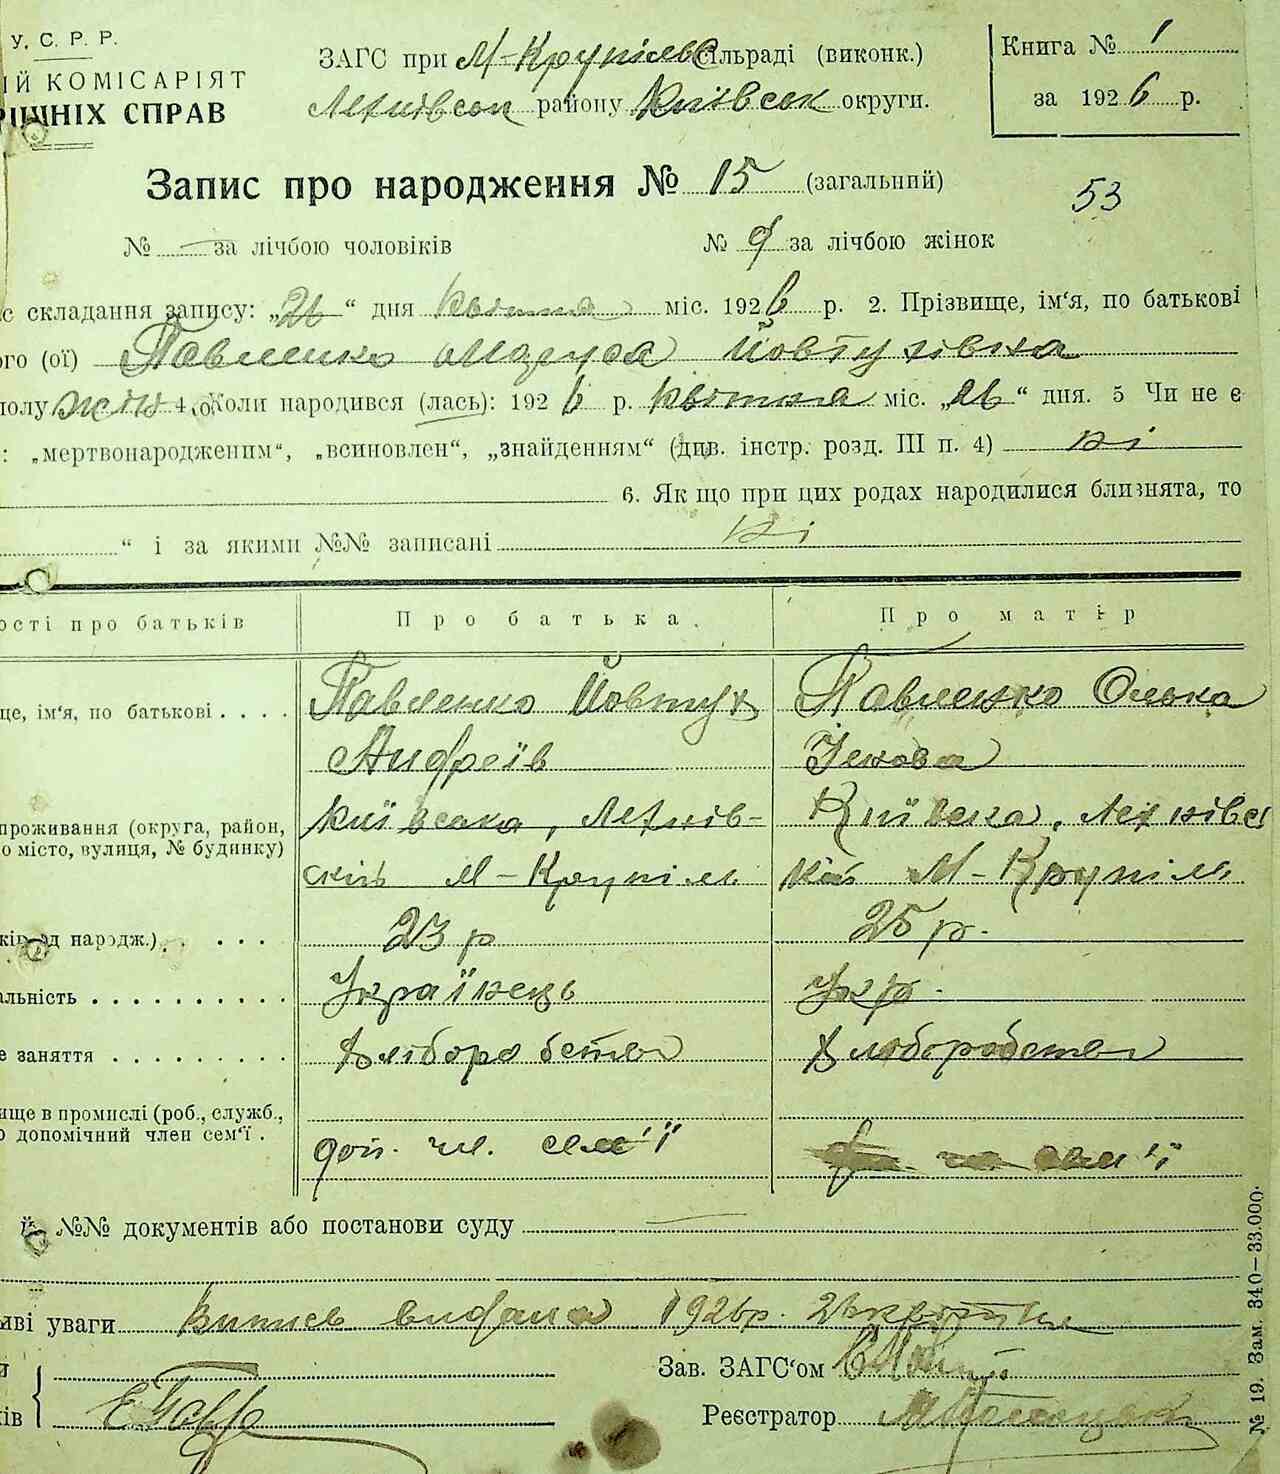 У. С. Р. Р.
ИЙ КОМІСАРІЯТ
РІШНІХ СПРАВ
ЗАГС при М-Крупільс сільраді (виконк.)
Лехнівськ району Київськ округи.
Книга № 1
за 1926 р.
Запис про народження № 15 (загальний)
53
№ — за лічбою чоловіків № 9 за лічбою жінок
с складання запису: „26“ дня квітня міс. 1926 р. 2. Прізвище, ім'я, по батькові
ого (ої) Павленко Маруся Йовтухівна
полу жін 4. Коли народився (лась): 1926 р. квітня міс. „26“ дня. 5 Чи не є
: „мертвонародженим“, „всиновлен“, „знайденням“ (див. інстр. розд. III п. 4) ні
6. Як що при цих родах народилися близнята, то
“ і за якими №№ записані ні
ості про батьків Про батька Про матір
ще, ім'я, по батькові . . . . Павленко Йовтух Павленко Олька
Андреїв Якова
проживання (округа, район, Київська, Лехнів- Київська, Лехнівсь
о місто, вулиця, № будинку)
ській М-Крупіль кій М-Крупіль
ків од народж.) . . . . 23 р 25 р.
альність . . . . . . . . . . Українець Укр.
е заняття . . . . . . . . . Хліборобство Хлібобробство
ище в промислі (роб., служб.,
о допомічний член сем'ї . доп. чл. сем'ї сем'ї
й №№ документів або постанови суду —
иві уваги Витись видана 1926р. 26 квітня
и Зав. ЗАГС'ом
ків Реєстратор
№ 19. Зам. 340—33.000.